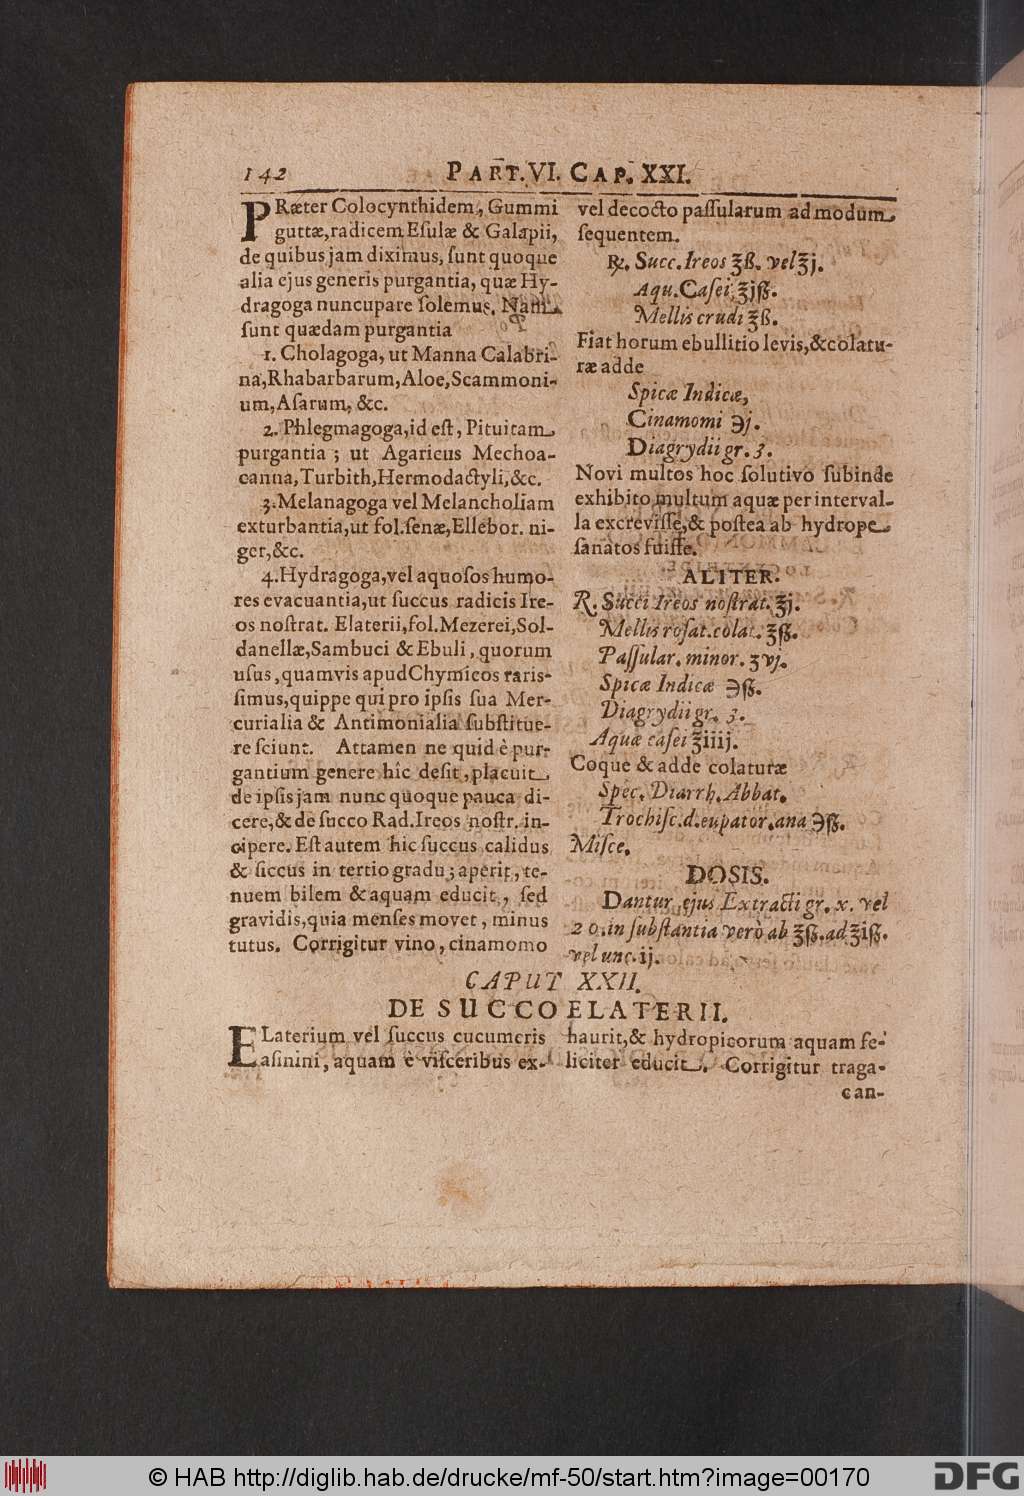 142 PART. VI. CAP. XXI.
PRæter Colocynthidem, Gummi
guttæ, radicem Eſulæ & Galapii,
de quibus jam diximus, ſunt quoque
alia ejus generis purgantia, quæ Hy-
dragoga nuncupare ſolemus. Nam
ſunt quædam purgantia
1. Cholagoga, ut Manna Calabri-
na, Rhabarbarum, Aloe, Scammoni-
um, Aſarum, &c.
2. Phlegmagoga, id eſt, Pituitam
purgantia ; ut Agaricus Mechoa-
canna, Turbith, Hermodactyli, &c.
3. Melanagoga vel Melancholiam
exturbantia, ut fol. ſenæ, Ellebor. ni-
ger, &c.
4. Hydragoga, vel aquoſos humo-
res evacuantia, ut ſuccus radicis Ire-
os noſtrat. Elaterii, fol. Mezerei, Sol-
danellæ, Sambuci & Ebuli, quorum
uſus, quamvis apud Chymicos raris-
ſimus, quippe qui pro ipſis ſua Mer-
curialia & Antimonialia ſubſtitue-
re ſciunt. Attamen ne quid è pur-
gantium genere hîc deſit, placuit
de ipſis jam nunc quoque pauca di-
cere, & de ſucco Rad. Ireos noſtr. in-
cipere. Eſt autem hic ſuccus calidus
& ſiccus in tertio gradu; aperit, te-
nuem bilem & aquam educit, ſed
gravidis, quia menſes movet, minus
tutus. Corrigitur vino, cinamomo
vel decocto paſſularum ad modum
ſequentem.
℞. Succ. Ireos ℥ß. vel ℥j.
Aqu. Caſei ℥jß.
Mellis crudi ℥ß.
Fiat horum ebullitio levis, & colatu-
ræ adde
Spicæ Indicæ,
Cinamomi ℈j.
Diagrydii gr. 3.
Novi multos hoc ſolutivo ſubinde
exhibito multum aquæ per interval-
la excreviſſe, & poſtea ab hydrope
ſanatos fuiſſe.
ALITER.
℞. Succi Ireos noſtrat. ℥j.
Mellis roſat. colat. ℥ß.
Paſſular. minor. ʒvj.
Spicæ Indicæ ℈ß.
Diagrydii gr. 3.
Aquæ caſei ℥iiij.
Coque & adde colaturæ
Spec. Diarrh. Abbat.
Trochiſc. d. eupator. ana ℈ß.
Miſce.
DOSIS.
Dantur ejus Extracti gr. x. vel
20. in ſubſtantia verò ab ℥ß. ad ℥iß.
vel unc. ij.
CAPUT XXII.
DE SUCCO ELATERII.
ELaterium vel ſuccus cucumeris
aſinini, aquam è viſceribus ex-
haurit, & hydropicorum aquam fe-
liciter educit. Corrigitur traga-
can-
© HAB http://diglib.hab.de/drucke/mf-50/start.htm?image=00170
DFG